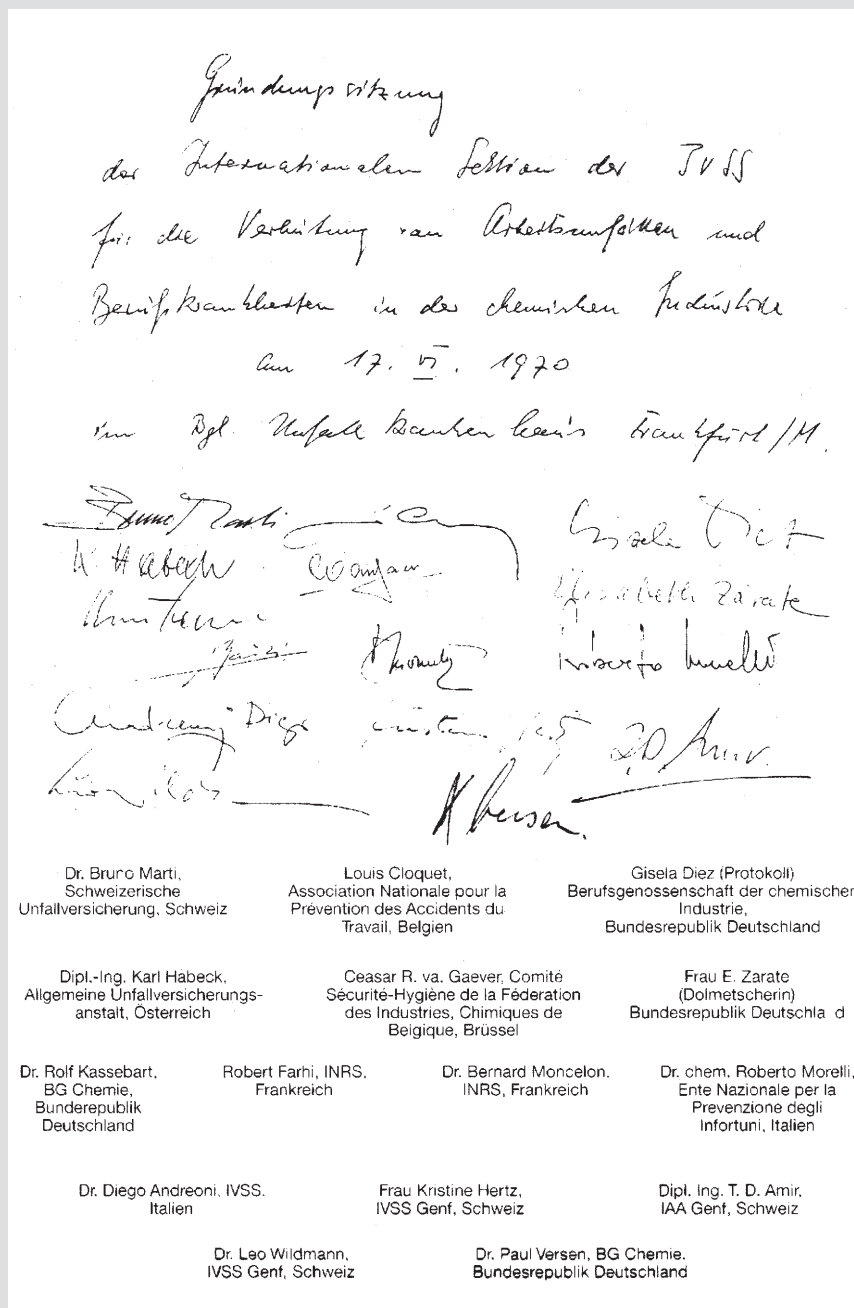 Gründungssitzung
der Internationalen Sektion der IVSS
für die Verhütung von Arbeitsunfällen und
Berufskrankheiten in der chemischen Industrie
am 17. VI. 1970
im Bgl. Unfallkrankenhaus Frankfurt/M.
Bruno Marti Gisela Diez
K Habeck Elisabeth Zárate
Roberto Morelli
Andreoni Diego T.D. Amir.
K Versen.
Dr. Bruno Marti,
Schweizerische
Unfallversicherung, Schweiz
Louis Cloquet,
Association Nationale pour la
Prévention des Accidents du
Travail, Belgien
Gisela Diez (Protokoll)
Berufsgenossenschaft der chemischen
Industrie,
Bundesrepublik Deutschland
Dipl.-Ing. Karl Habeck,
Allgemeine Unfallversicherungs-
anstalt, Österreich
Ceasar R. va. Gaever, Comité
Sécurité-Hygiène de la Féderation
des Industries, Chimiques de
Belgique, Brüssel
Frau E. Zarate
(Dolmetscherin)
Bundesrepublik Deutschla d
Dr. Rolf Kassebart,
BG Chemie,
Bunderepublik
Deutschland
Robert Farhi, INRS,
Frankreich
Dr. Bernard Moncelon,
INRS, Frankreich
Dr. chem. Roberto Morelli,
Ente Nazionale per la
Prevenzione degli
Infortuni, Italien
Dr. Diego Andreoni, IVSS.
Italien
Frau Kristine Hertz,
IVSS Genf, Schweiz
Dipl. Ing. T. D. Amir,
IAA Genf, Schweiz
Dr. Leo Wildmann,
IVSS Genf, Schweiz
Dr. Paul Versen, BG Chemie.
Bundesrepublik Deutschland